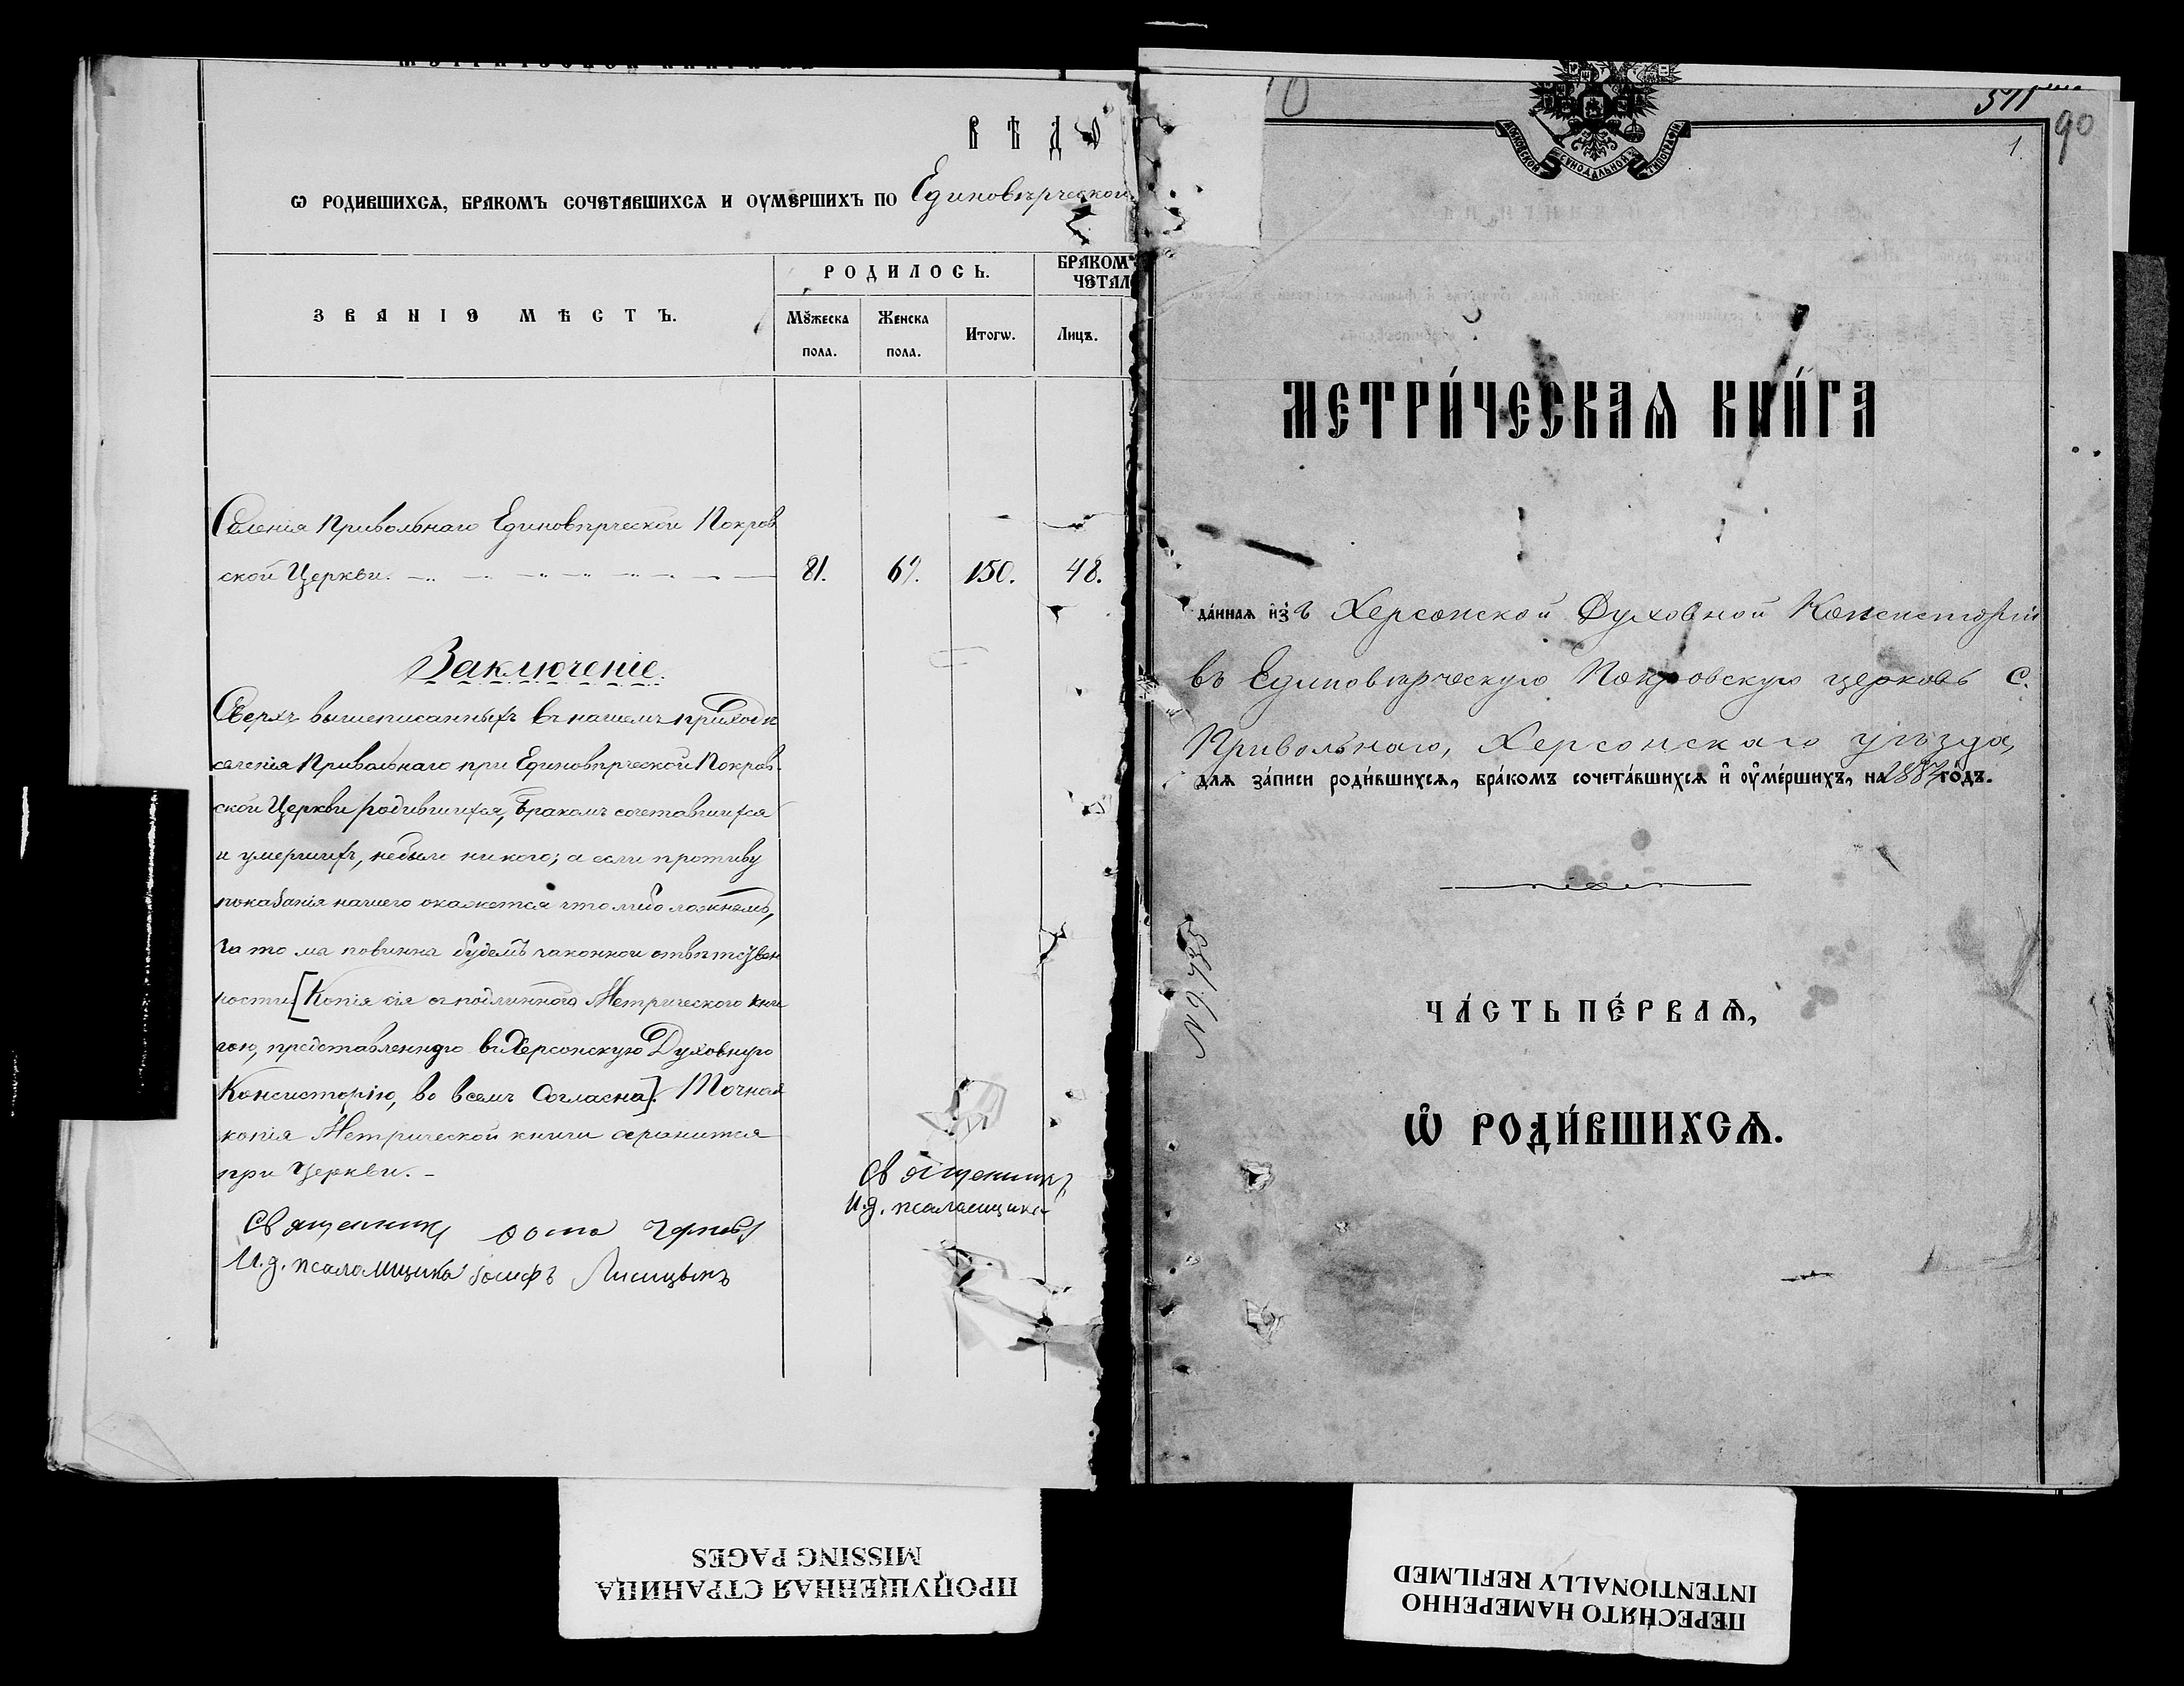 ВѢДО
Ѡ РОДИВШИХСѦ, БРАКОМЪ СОЧЕТАВШИХСѦ И ОУМЕРШИХЪ ПО Единовѣрческой
ЗВАНІЕ МѢСТЪ.
РОДИЛОСЬ.
БРАКОМЪ
ЧЕТАЛ
Мꙋжеска пола.
Женска пола.
Итогѡ.
Лицъ.
Селенія Привольнаго Единовѣрческой Покров
ской Церкви.
81.
69.
150.
48.
Заключеніе.
Сверхъ вышеписанныхъ въ нашемъ приходѣ
селенія Привольнаго при Единовѣрческой Покров-
ской Церкви родившихся, бракомъ сочетавшихся
и умершихъ, небыло никого; а если противу
показанія нашего окажется что либо ложнымъ,
за то мы повинны будемъ законной отвѣтствен
ности [Копія сія съ подлинного Метрического кни
гою, представленную въ Херсонскую Духовную
Консисторію, во всемъ Согласна]. Точная
копія Метрической книги хранится
при Церкви. -
Священникъ
И.д. псаломщика
Священникъ Ѳома
И.д. псаломщика Іосифъ Лисицынъ
511
90
1.
МОСКОВСКОЙ СѴНОДАЛЬНОЙ ТИПОГРАФІИ
МЕТРИ́ЧЕСКАѦ КНИ́ГА
да́ннаѧ и҆зъ Херсонской Духовной Консисторіи
въ Единовѣрческую Покровскую церковь с.
Привольнаго, Херсонскаго уѣзда,
длѧ за́писи роди́вшихсѧ, бра́комъ сочета́вшихсѧ и҆ оу҆ме́ршихъ, на 1887 го́дъ.
ЧА́СТЬ ПЕ́РВАѦ,
Ѡ҆ РОДИ́ВШИХСѦ.
ПРОПУЩЕННАЯ СТРАНИЦА
MISSING PAGES
ПЕРЕСНЯТО НАМЕРЕННО
INTENTIONALLY REFILMED